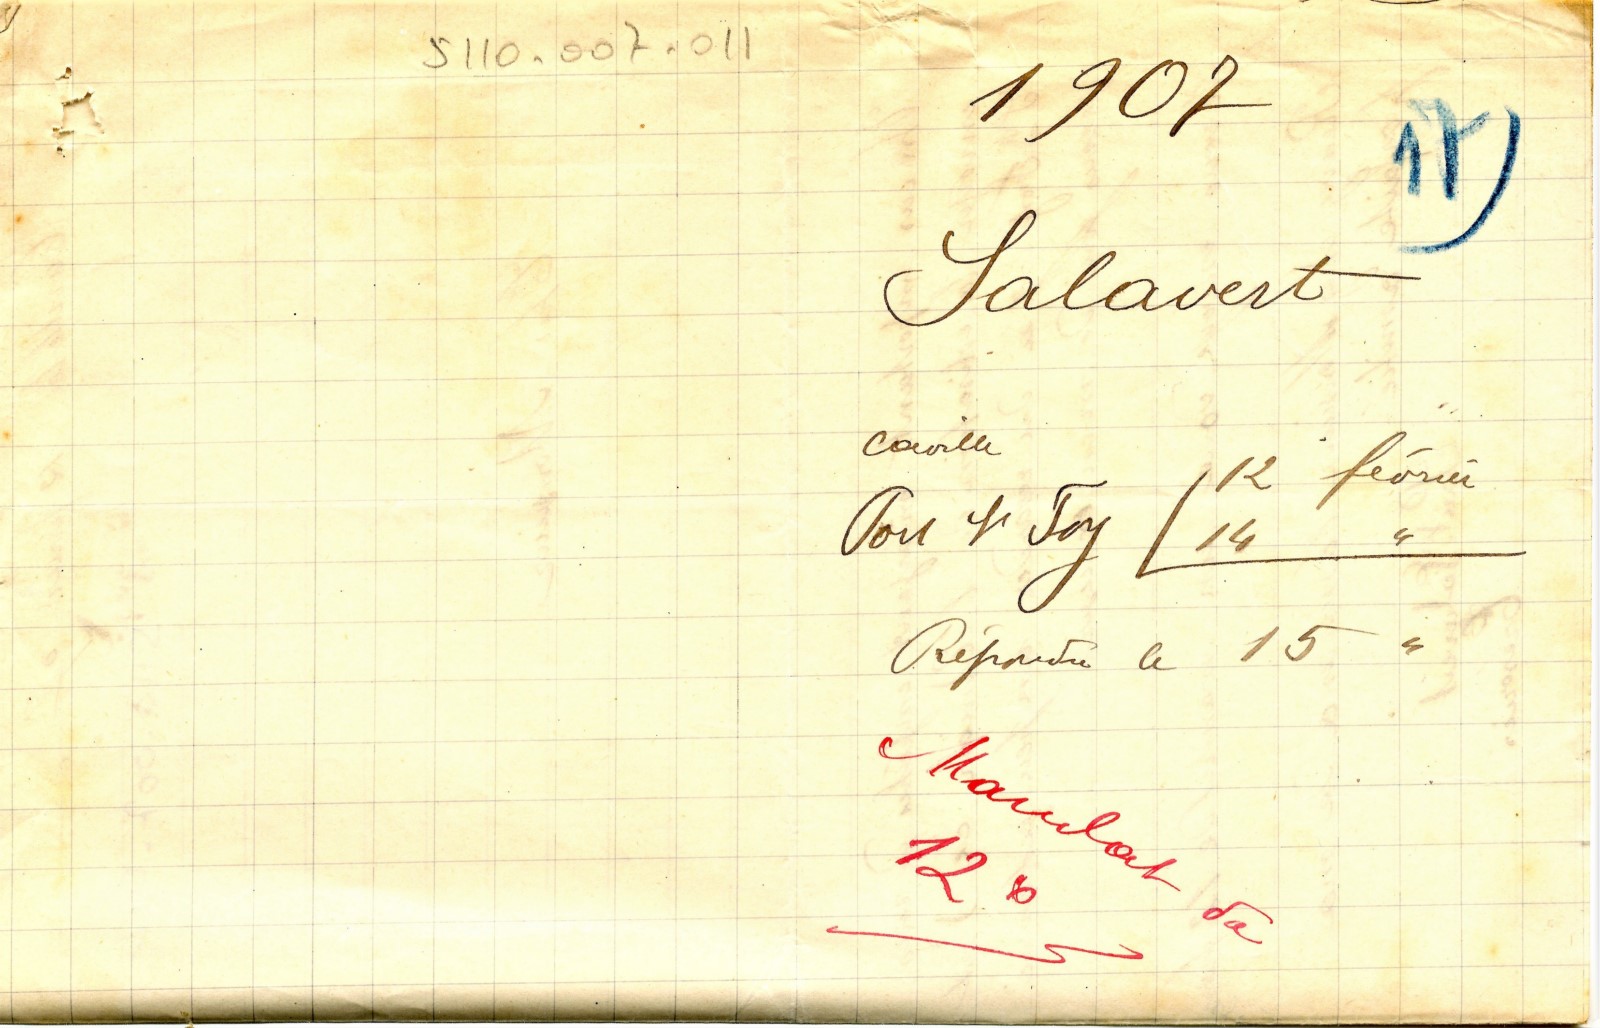 5110.007.011
1907
17)
Salavert
Port Ste Foy
12 février
14 "
Répondu le 15 "
Mandat de
12